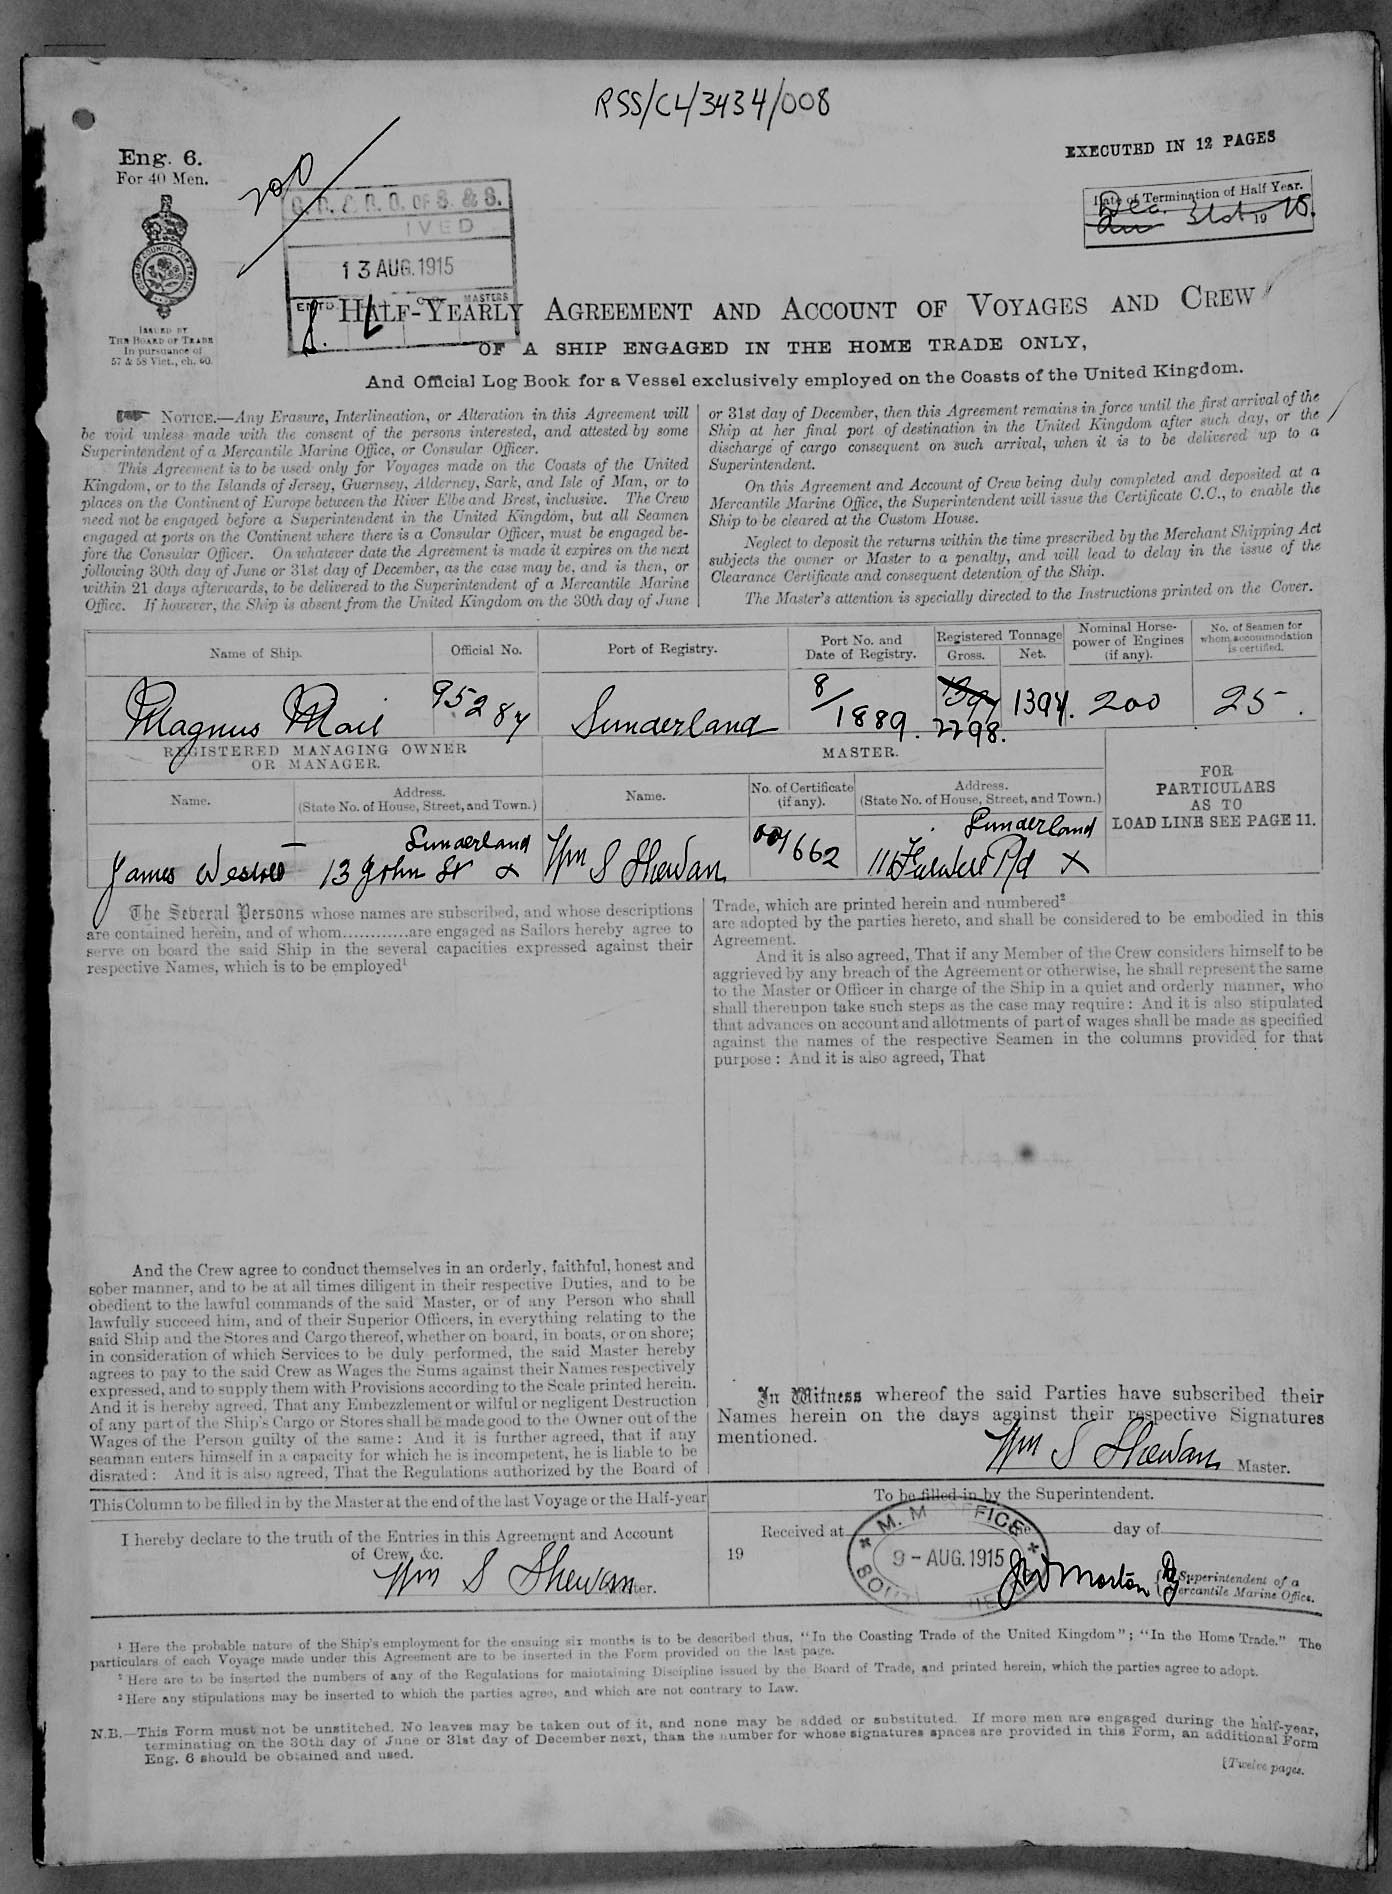 RSS/CL/3434/008
Eng. 6.
For 40 Men.
200
EXECUTED IN 12 PAGES
Date of Termination of Half Year.
Dec. 31st 1915.
OF S. & S.
IVED
13 AUG. 1915
ENTD
MASTERS
COM. OF COUNCIL FOR TRADE
ISSUED BY
THE BOARD OF TRADE
In pursuance of
57 & 58 Vict., ch. 60.
HALF-YEARLY AGREEMENT AND ACCOUNT OF VOYAGES AND CREW
OF A SHIP ENGAGED IN THE HOME TRADE ONLY,
And Official Log Book for a Vessel exclusively employed on the Coasts of the United Kingdom.
NOTICE.—Any Erasure, Interlineation, or Alteration in this Agreement will
be void unless made with the consent of the persons interested, and attested by some
Superintendent of a Mercantile Marine Office, or Consular Officer.
This Agreement is to be used only for Voyages made on the Coasts of the United
Kingdom, or to the Islands of Jersey, Guernsey, Alderney, Sark, and Isle of Man, or to
places on the Continent of Europe between the River Elbe and Brest, inclusive. The Crew
need not be engaged before a Superintendent in the United Kingdom, but all Seamen
engaged at ports on the Continent where there is a Consular Officer, must be engaged be-
fore the Consular Officer. On whatever date the Agreement is made it expires on the next
following 30th day of June or 31st day of December, as the case may be, and is then, or
within 21 days afterwards, to be delivered to the Superintendent of a Mercantile Marine
Office. If however, the Ship is absent from the United Kingdom on the 30th day of June
or 31st day of December, then this Agreement remains in force until the first arrival of the
Ship at her final port of destination in the United Kingdom after such day, or the
discharge of cargo consequent on such arrival, when it is to be delivered up to a
Superintendent.
On this Agreement and Account of Crew being duly completed and deposited at a
Mercantile Marine Office, the Superintendent will issue the Certificate C.C., to enable the
Ship to be cleared at the Custom House.
Neglect to deposit the returns within the time prescribed by the Merchant Shipping Act
subjects the owner or Master to a penalty, and will lead to delay in the issue of the
Clearance Certificate and consequent detention of the Ship.
The Master's attention is specially directed to the Instructions printed on the Cover.
Name of Ship.
Official No.
Port of Registry.
Port No. and
Date of Registry.
Registered Tonnage
Gross.
Net.
Nominal Horse-
power of Engines
(if any).
No. of Seamen for
whom accommodation
is certified.
Magnus Mail
95287
Sunderland
8/1889.
1394
2298.
1394.
200
25.
REGISTERED MANAGING OWNER
OR MANAGER.
MASTER.
Name.
Address.
(State No. of House, Street, and Town.)
Name.
No. of Certificate
(if any).
Address.
(State No. of House, Street, and Town.)
FOR
PARTICULARS
AS TO
LOAD LINE SEE PAGE 11.
James Westoll
Sunderland
13 John St x
Wm S Shewan
001662
Sunderland
116 Fulwell Rd x
The Several Persons whose names are subscribed, and whose descriptions
are contained herein, and of whom............are engaged as Sailors hereby agree to
serve on board the said Ship in the several capacities expressed against their
respective Names, which is to be employed¹
And the Crew agree to conduct themselves in an orderly, faithful, honest and
sober manner, and to be at all times diligent in their respective Duties, and to be
obedient to the lawful commands of the said Master, or of any Person who shall
lawfully succeed him, and of their Superior Officers, in everything relating to the
said Ship and the Stores and Cargo thereof, whether on board, in boats, or on shore;
in consideration of which Services to be duly performed, the said Master hereby
agrees to pay to the said Crew as Wages the Sums against their Names respectively
expressed, and to supply them with Provisions according to the Scale printed herein.
And it is hereby agreed, That any Embezzlement or wilful or negligent Destruction
of any part of the Ship's Cargo or Stores shall be made good to the Owner out of the
Wages of the Person guilty of the same: And it is further agreed, that if any
seaman enters himself in a capacity for which he is incompetent, he is liable to be
disrated: And it is also agreed, That the Regulations authorized by the Board of
Trade, which are printed herein and numbered²
are adopted by the parties hereto, and shall be considered to be embodied in this
Agreement.
And it is also agreed, That if any Member of the Crew considers himself to be
aggrieved by any breach of the Agreement or otherwise, he shall represent the same
to the Master or Officer in charge of the Ship in a quiet and orderly manner, who
shall thereupon take such steps as the case may require: And it is also stipulated
that advances on account and allotments of part of wages shall be made as specified
against the names of the respective Seamen in the columns provided for that
purpose: And it is also agreed, That
In Witness whereof the said Parties have subscribed their
Names herein on the days against their respective Signatures
mentioned.
Wm S Shewan Master.
This Column to be filled in by the Master at the end of the last Voyage or the Half-year
I hereby declare to the truth of the Entries in this Agreement and Account
of Crew, &c.
Wm S Shewan
To be filled in by the Superintendent.
Received at
day of
19
M. M. OFFICE
9 - AUG. 1915
Morton Dy
Superintendent of a
Mercantile Marine Office.
¹ Here the probable nature of the Ship's employment for the ensuing six months is to be described thus, "In the Coasting Trade of the United Kingdom"; "In the Home Trade." The
particulars of each Voyage made under this Agreement are to be inserted in the Form provided on the last page.
² Here are to be inserted the numbers of any of the Regulations for maintaining Discipline issued by the Board of Trade, and printed herein, which the parties agree to adopt.
³ Here any stipulations may be inserted to which the parties agree, and which are not contrary to Law.
N.B.—This Form must not be unstitched. No leaves may be taken out of it, and none may be added or substituted. If more men are engaged during the half-year,
terminating on the 30th day of June or 31st day of December next, than the number for whose signatures spaces are provided in this Form, an additional Form
Eng. 6 should be obtained and used.
[Twelve pages.